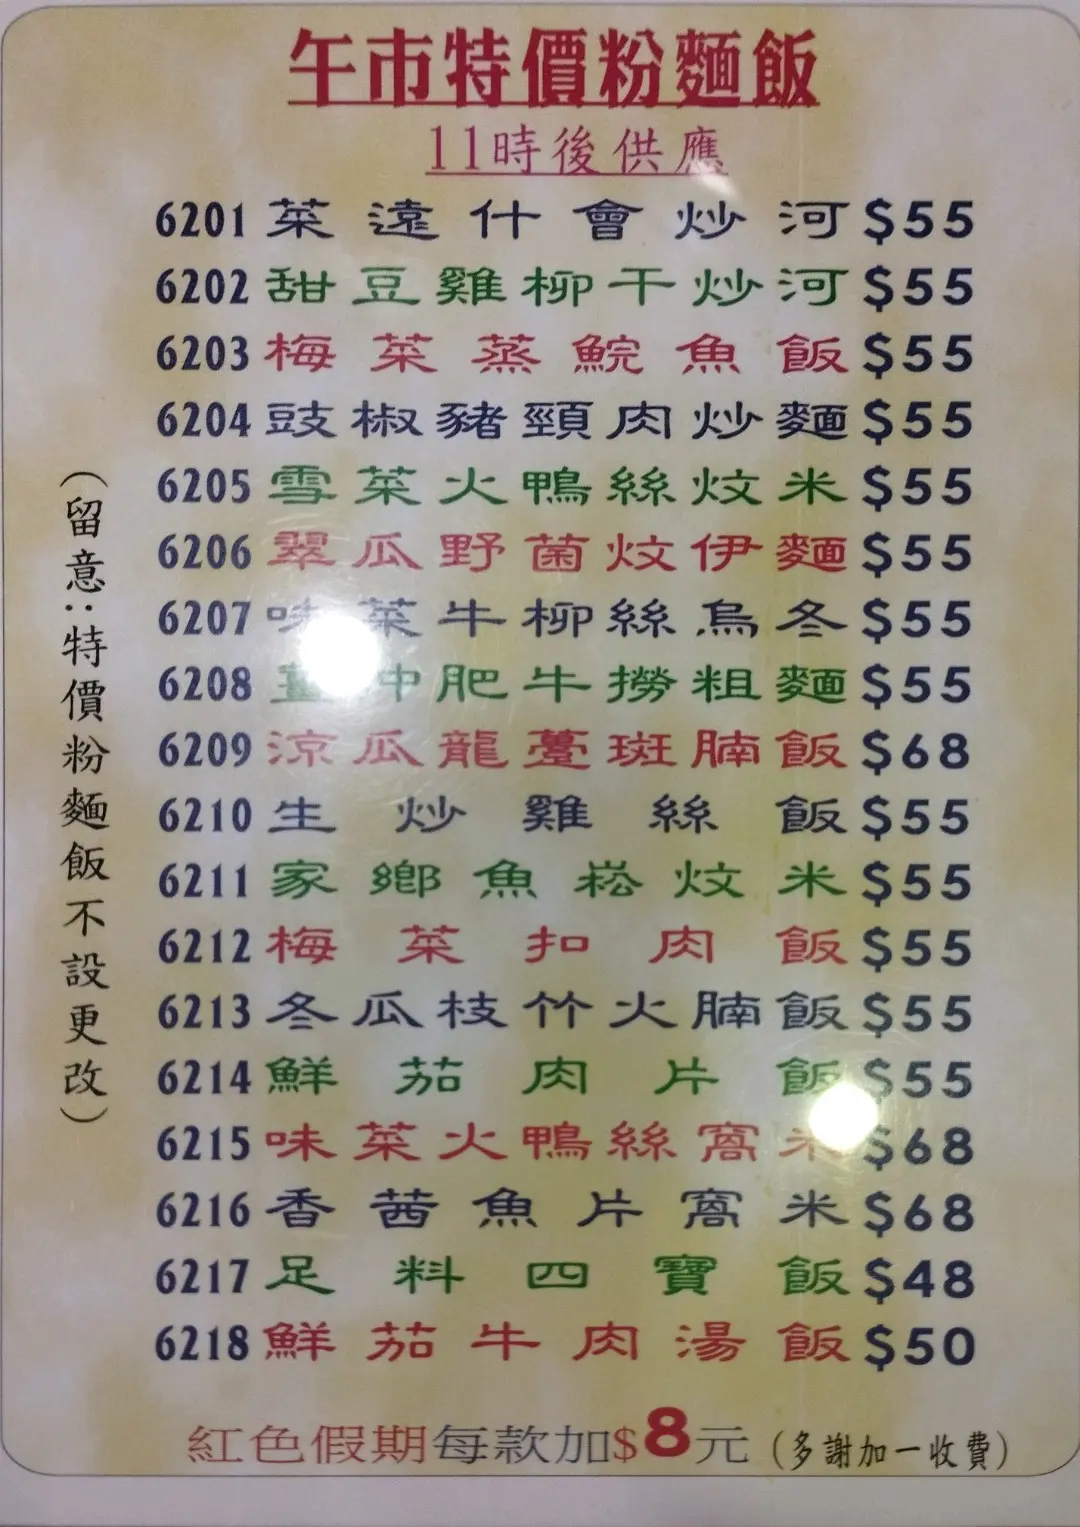 午市特價粉麵飯
11時後供應
6201 菜遠什會炒河 $55
6202 甜豆雞柳干炒河 $55
6203 梅菜蒸鯇魚飯 $55
6204 豉椒豬頸肉炒麵 $55
6205 雪菜火鴨絲炆米 $55
6206 翠瓜野菌炆伊麵 $55
6207 味菜牛柳絲烏冬 $55
6208 肥牛撈粗麵 $55
6209 涼瓜龍躉斑腩飯 $68
6210 生炒雞絲飯 $55
6211 家鄉魚崧炆米 $55
6212 梅菜扣肉飯 $55
6213 冬瓜枝竹火腩飯 $55
6214 鮮茄肉片飯 $55
6215 味菜火鴨絲窩米 $68
6216 香茜魚片窩米 $68
6217 足料四寶飯 $48
6218 鮮茄牛肉湯飯 $50
(留意:特價粉麵飯不設更改)
紅色假期每款加$8元(多謝加一收費)